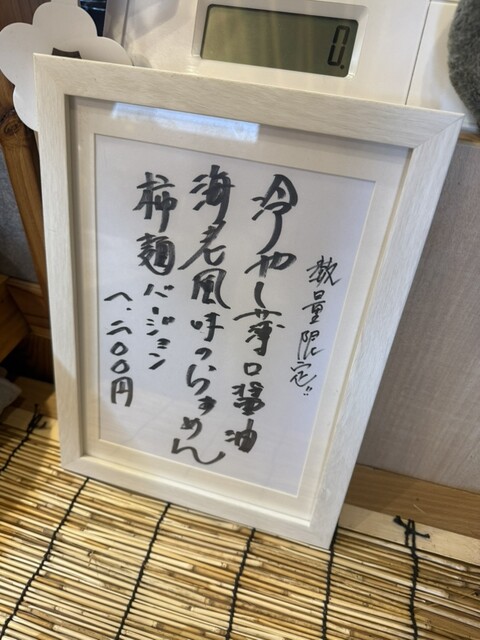 数量限定!!
冷やし薄口醤油
海老風味のらぁめん
柿麺バージョン
一、二〇〇円
0.